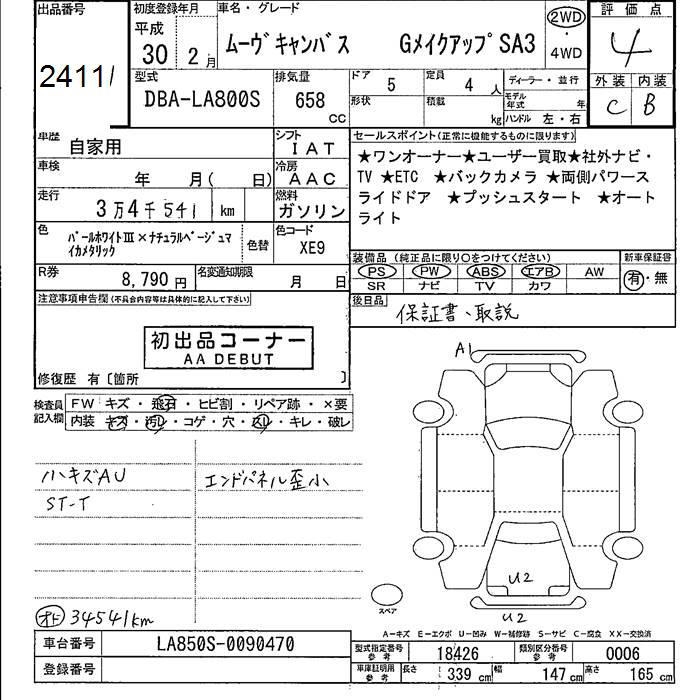 出品番号 初度登録年月 車名・グレード 2WD 評価点
平成
30 2月 ムーヴキャンバス GメイクアップSA3 4WD 4
24111
型式 排気量 ドア 5 定員 4 人 ディーラー・並行 外装 内装
DBA-LA800S 658 CC 形状 積載 kg モデル年式 年 C B
ハンドル 左・右
車歴 自家用 シフト IAT セールスポイント(正常に機能するものに限ります)
車検 年 月( 日) 冷房 AAC ★ワンオーナー★ユーザー買取★社外ナビ・
TV ★ETC ★バックカメラ ★両側パワース
走行 3万4千541 km 燃料 ガソリン ライドドア ★プッシュスタート ★オート
ライト
色 パールホワイトIII×ナチュラルベージュマ
イカメタリック 色替 色コード XE9
装備品(純正品に限り○をつけてください) 新車保証書
R券 8,790円 名変通知期限 月 日 PS PW ABS エアB AW 有・無
SR ナビ TV カワ
注意事項申告欄(不具合内容等は具体的に記入して下さい) 後日品
保証書、取説
初出品コーナー
AA DEBUT
修復歴 有〔箇所 〕
検査員記入欄 FW キズ・飛石・ヒビ割・リペア跡・×要
内装 キズ・汚レ・コゲ・穴・スレ・キレ・破レ
A1
ハキズAU エンドパネル歪小
ST-T
U2
スペア
U2
34541km
A-キズ E-エクボ U-凹み W-補修跡 S-サビ C-腐食 XX-交換済
車台番号 LA850S-0090470 型式指定番号 参考 18426 類別区分番号 参考 0006
登録番号 車庫証明用 参考 長さ 339 cm 幅 147 cm 高さ 165 cm